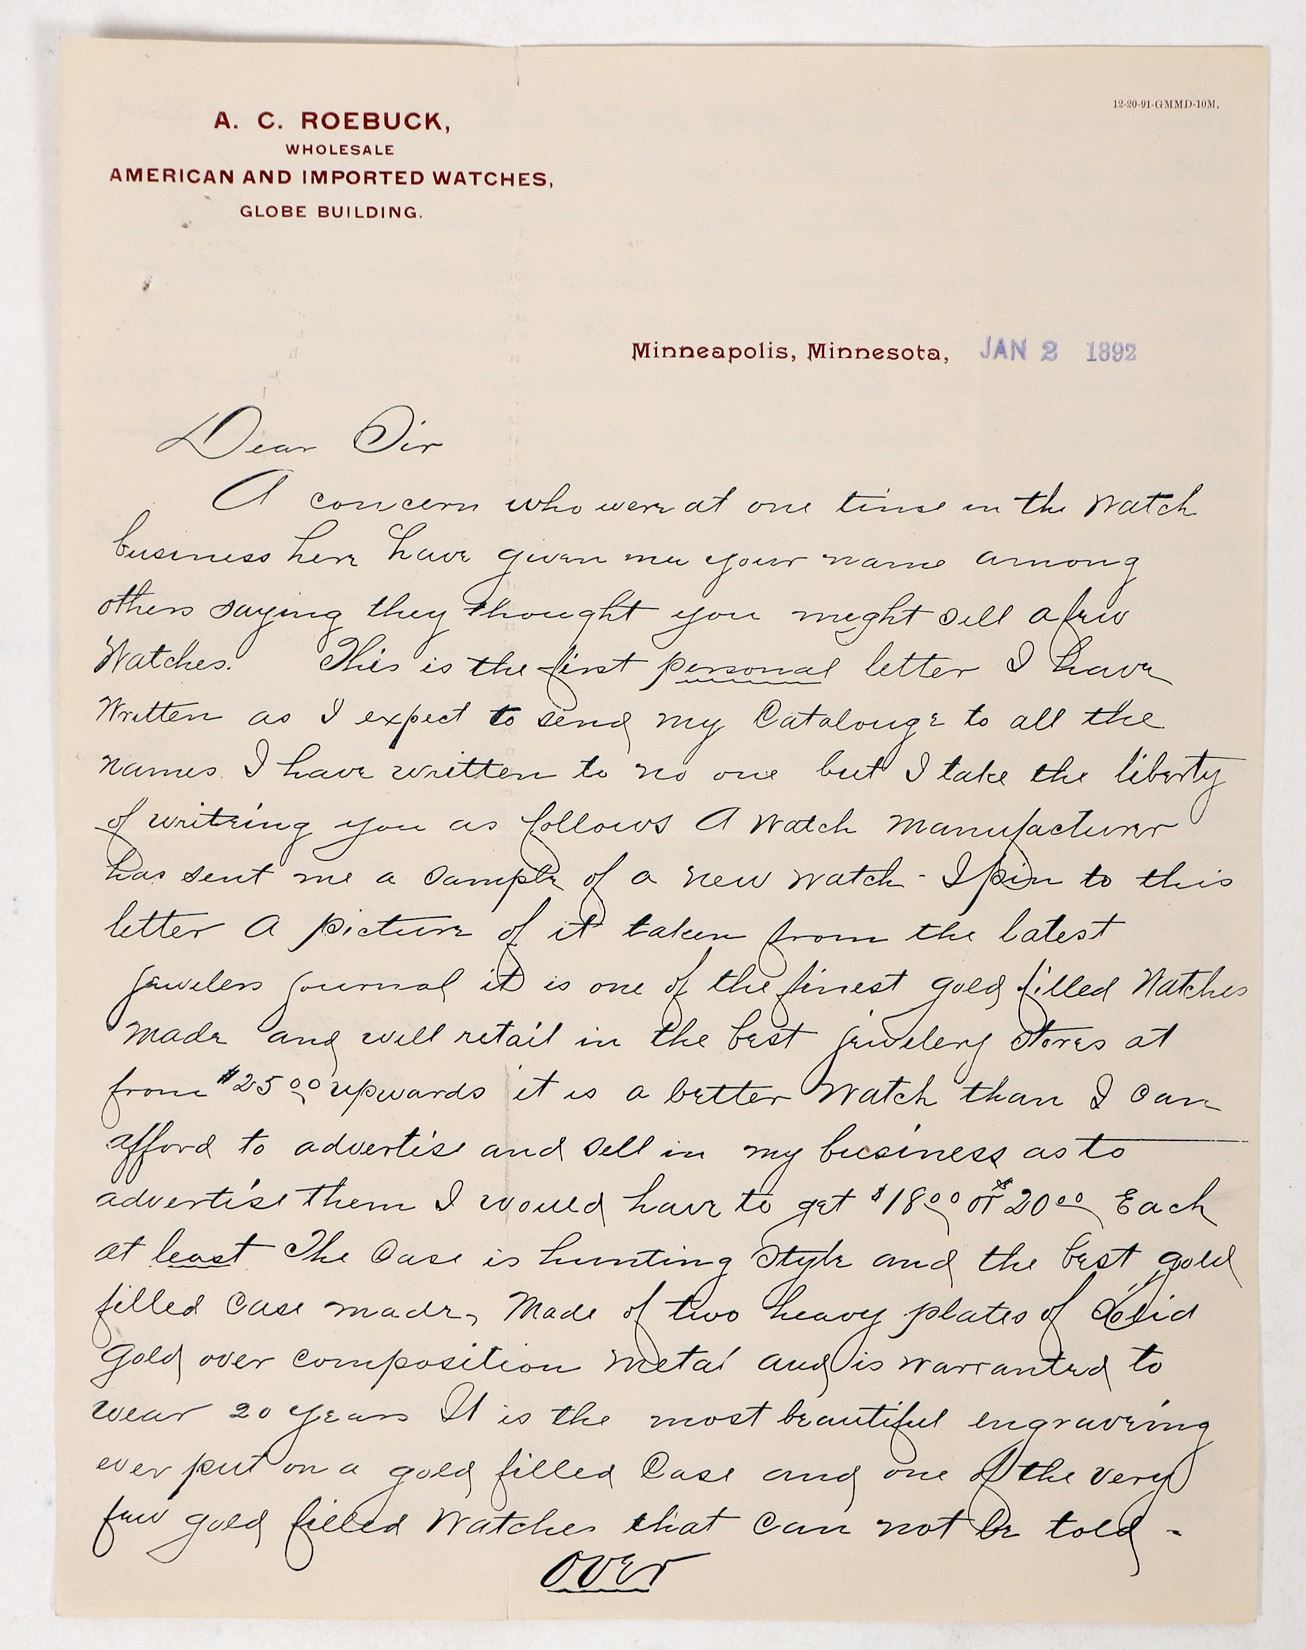 12-20-91-GMMD-10M.
A. C. ROEBUCK,
WHOLESALE
AMERICAN AND IMPORTED WATCHES,
GLOBE BUILDING.
Minneapolis, Minnesota, JAN 2 1892
Dear Sir
A concern who were at one time in the Watch
business here have given me your name among
others saying they thought you meght sell a few
Watches. This is the first personal letter I have
Written as I expect to send my Catalouge to all the
names I have written to no one but I take the liberty
of writeing you as follows A Watch Manufacturer
has sent me a sample of a new watch - I pin to this
letter A picture of it taken from the latest
jewelers journal it is one of the finest gold filled Watches
Made and will retail in the best jewelery stores at
from $25.00 upwards it is a better Watch than I can
afford to advertise and sell in my business as to
advertise them I would have to get $18.00 or $20.00 Each
at least The Case is hunting Style and the best gold
filled Case made, Made of two heavy plates of Solid
Gold over composition metal and is warranted to
wear 20 years It is the most beautiful engraveing
ever put on a gold filled Case and one of the very
few gold filled Watches that can not be told -
OVER